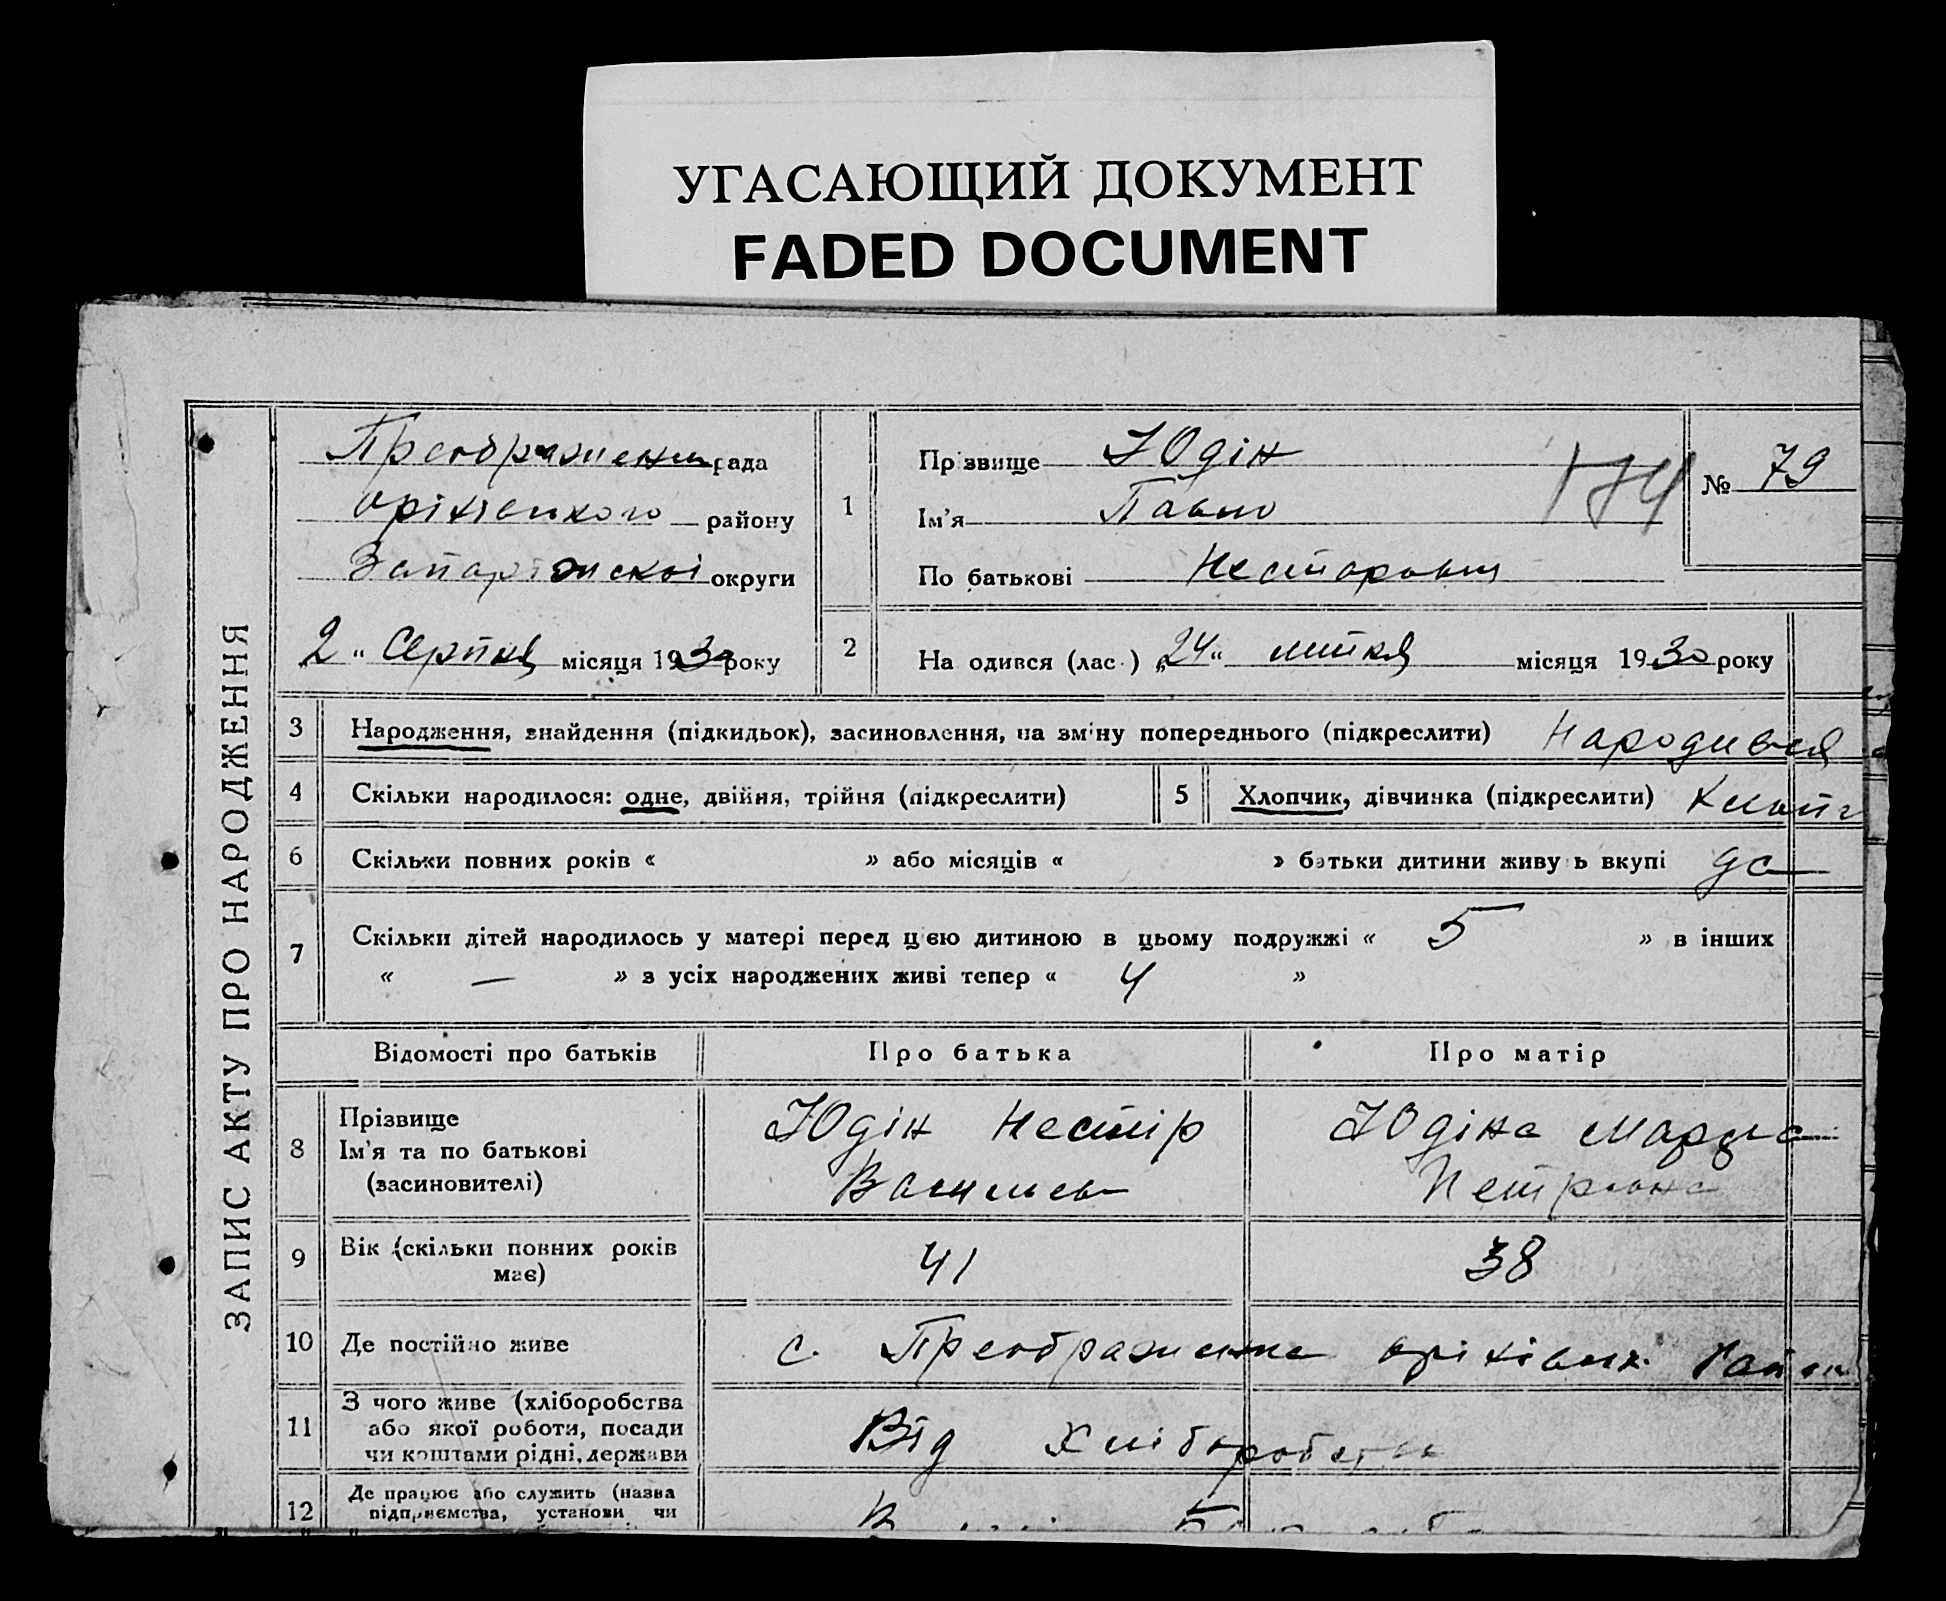 УГАСАЮЩИЙ ДОКУМЕНТ
FADED DOCUMENT
ЗАПИС АКТУ ПРО НАРОДЖЕННЯ
Преображенськ рада
Оріхівського району
Запорізської округи
2 " Серпня місяця 1930 року
1
Прізвище Юдін
Ім'я Павло
По батькові Несторович
№ 79
2
На одився (лас.) „24" липня місяця 1930 року
3 Народження, знайдення (підкидьок), засиновлення, на зміну попереднього (підкреслити) Народився
4 Скільки народилося: одне, двійня, трійня (підкреслити) 5 Хлопчик, дівчинка (підкреслити) Хлопч
6 Скільки повних років « » або місяців « » батьки дитини живу ь вкупі да
7 Скільки дітей народилось у матері перед цією дитиною в цьому подружжі « 5 » в інших
« — » з усіх народжених живі тепер « 4 »
Відомості про батьків Про батька Про матір
8 Прізвище
Ім'я та по батькові
(засиновителі)
Юдін Нестір
Васильев
Юдіна
Петровна
9 Вік (скільки повних років
має)
41 38
10 Де постійно живе с. Преображенка Оріхівськ. район
11 З чого живе (хліборобства
або якої роботи, посади
чи коштами рідні, держави
Від Хліборобства
12 Де працює або служить (назва
підприємства, установи чи